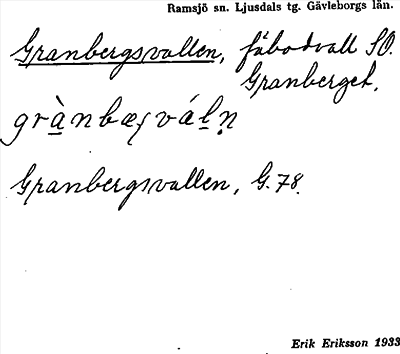 Ramsjö sn. Ljusdals tg. Gävleborgs län.
Granbergsvallen, fäbodvall SO.
Granberget.
grànbæʃváḻṇ
Granbergsvallen, G. 78.
Erik Eriksson 1933